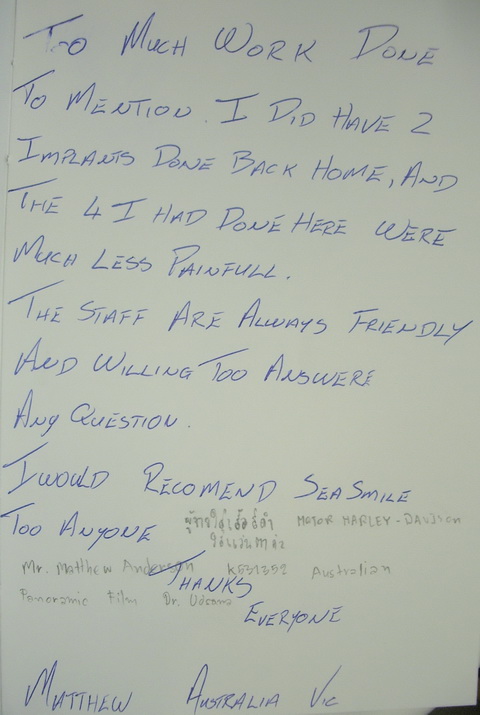 Too Much Work Done
To Mention. I Did Have 2
Implants Done Back Home, And
The 4 I Had Done Here Were
Much Less Painfull.
The Staff Are Always Friendly
And Willing Too Answere
Any Question.
I Would Recomend SeaSmile
Too Anyone
MOTOR HARLEY-DAVISON
Mr. Matthew Anderson KE31352 Australian
Thanks
Panoramic Film Dr.
Everyone
Matthew Australia Vic